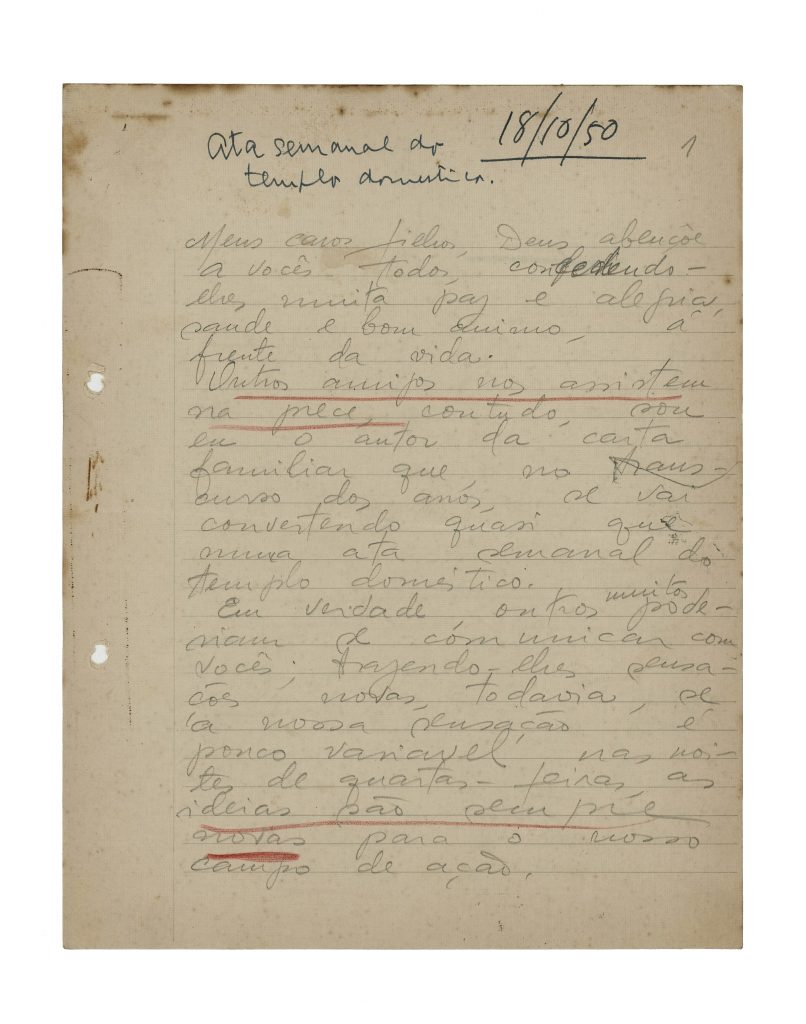 Ata semanal do
templo domestico.
18/10/50
1
Meus caros filhos, Deus abençõe
a vocês todos, concedendo-
lhes muita paz e alegria,
saude e bom animo, á
frente da vida.
Outros amigos nos assistem
na prece, contudo, sou
eu o autor da carta
familiar que no trans-
curso dos anos, se vai
convertendo quasi que
numa ata semanal do
templo doméstico.
Em verdade outros muitos pode-
riam se comunicar com
vocês, trazendo-lhes sensa-
ções novas, todavia, se
a nossa sensação é
pouco variavel nas noi-
tes de quartas-feiras, as
ideias são sempre
novas para o nosso
campo de ação.